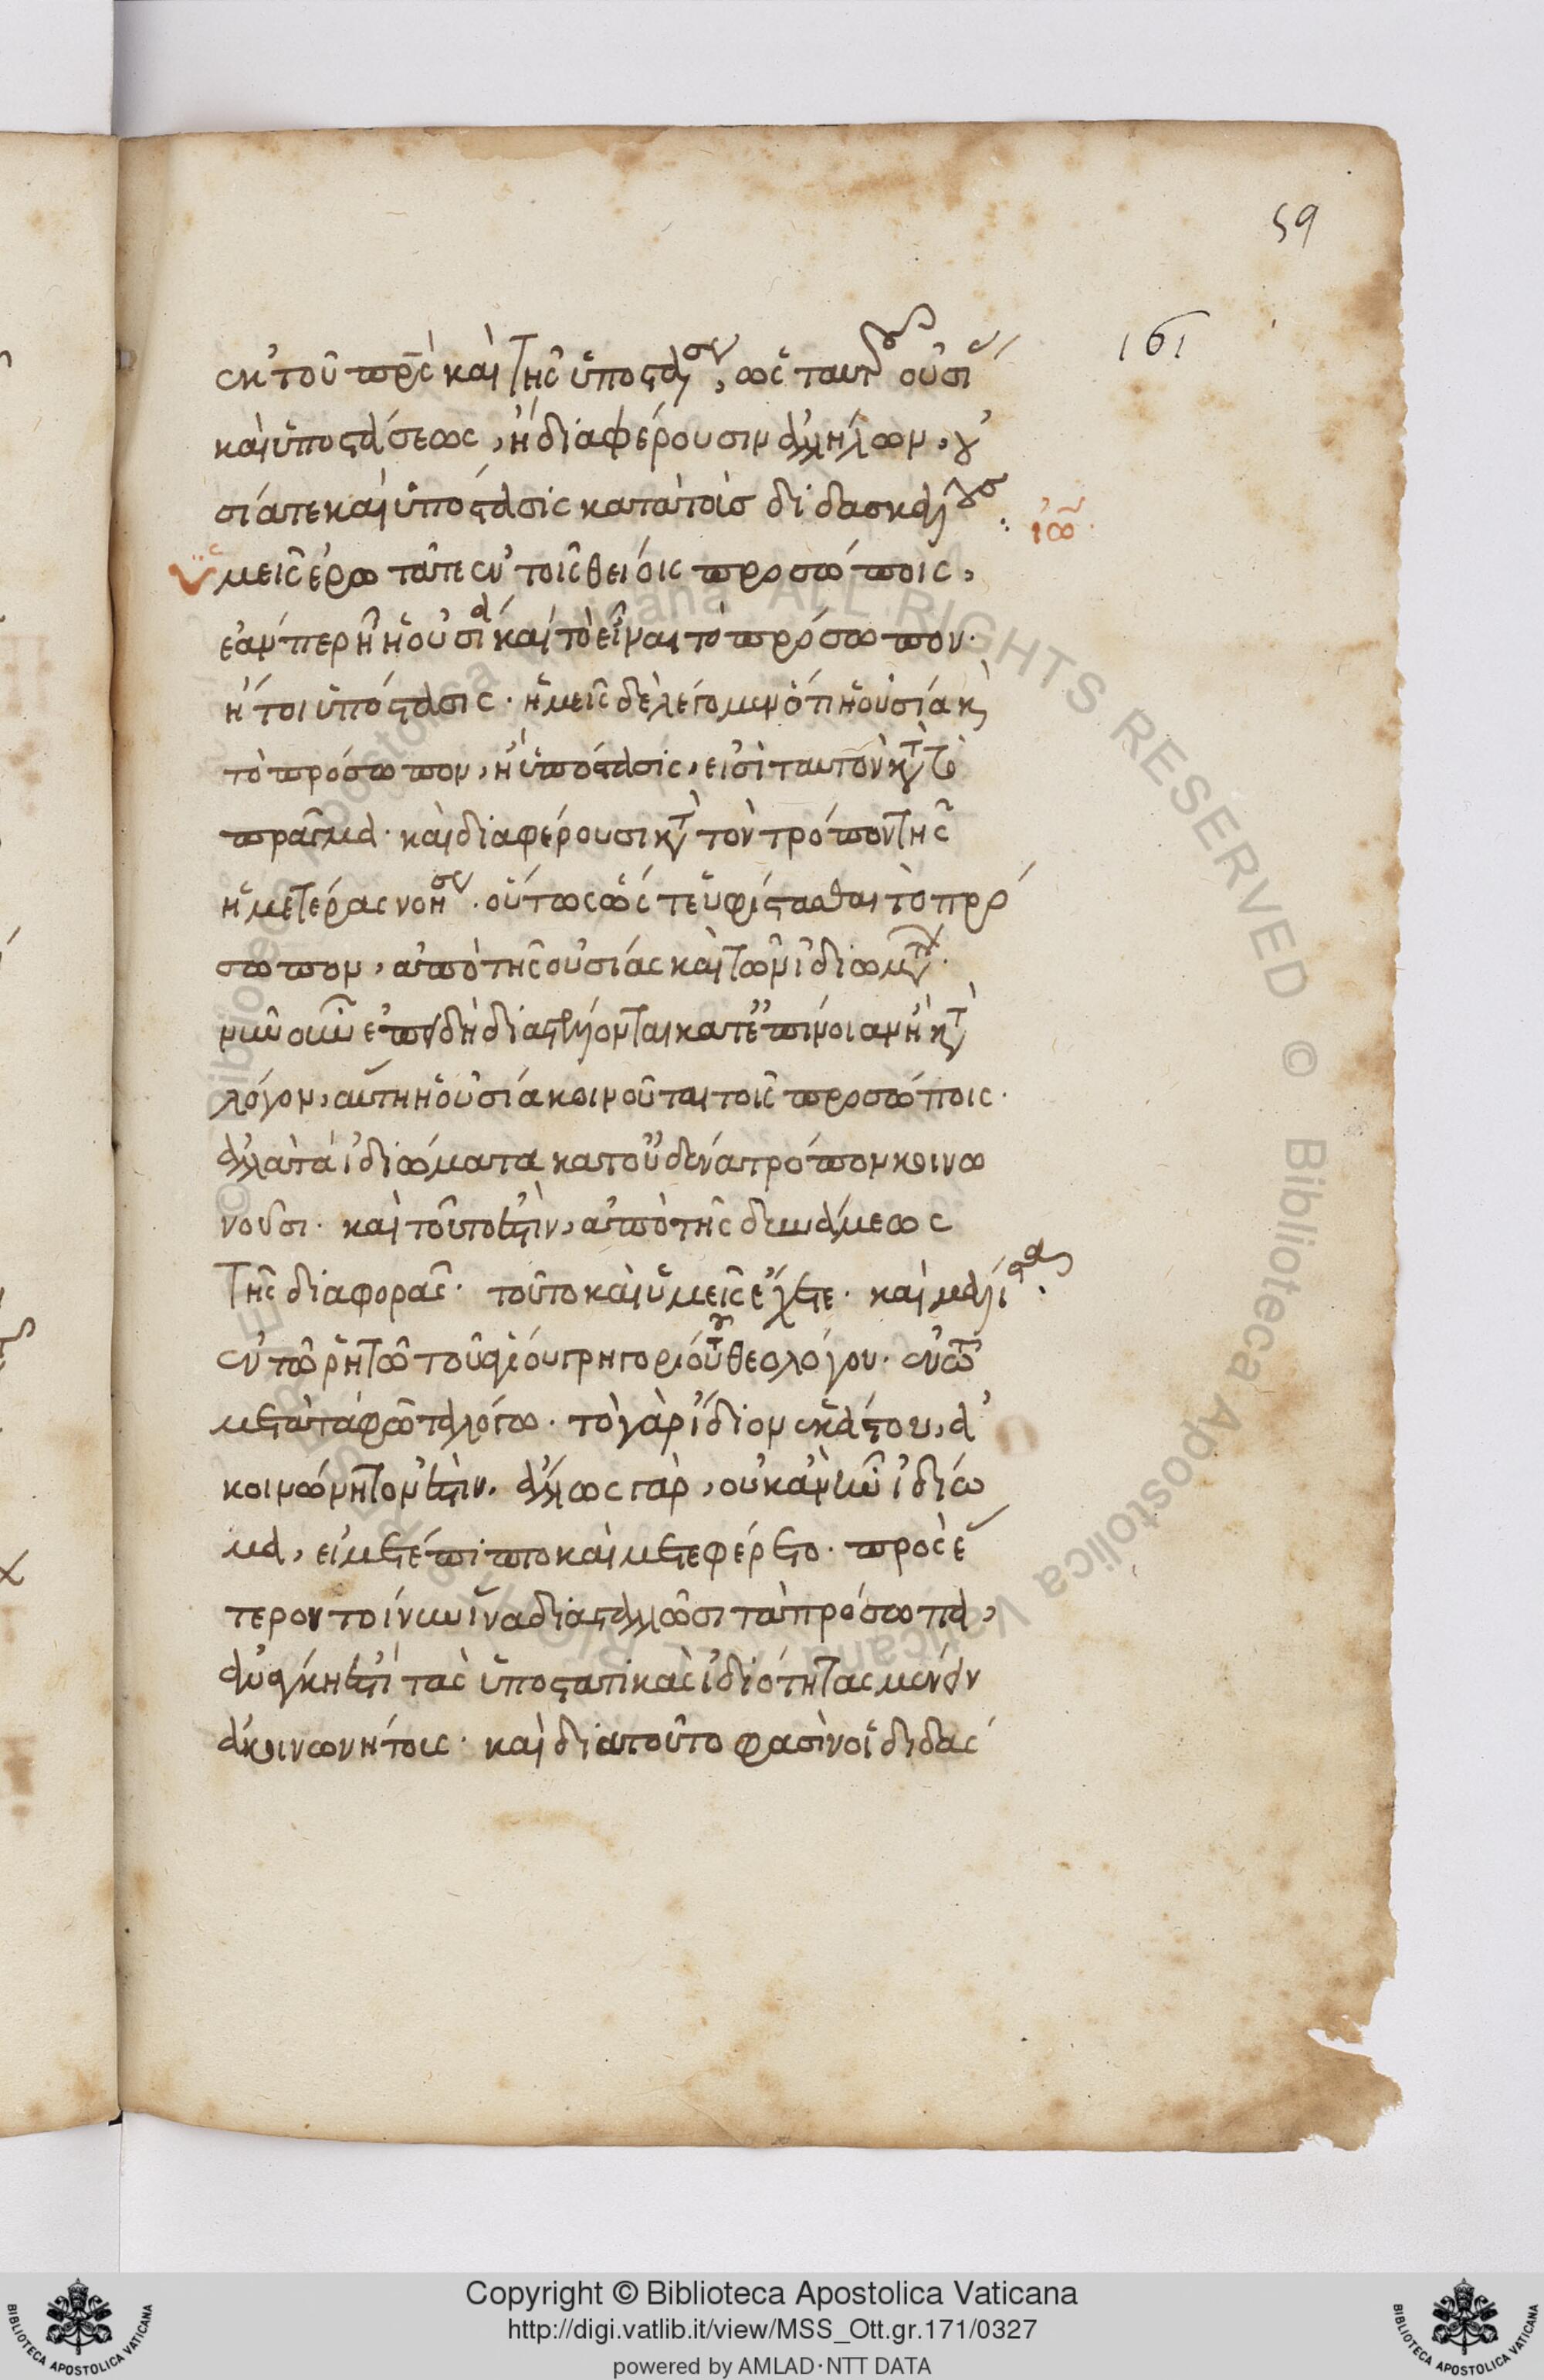 59
161
ἐκ τοῦ πρς καὶ τῆς ὑποστάσεως, ὡς ταυτοῦ οὐσίας
καὶ ὑποστάσεως, ἢ διαφέρουσιν ἀλλήλων, οὐ
σία τε καὶ ὑπόστασις κατὰ τοὺς διδασκάλους:
ἰω
ὑμεῖς ἐρωτᾶτε ἐν τοῖς θείοις προσώποις,
ἐάνπερ ἦ ἡ οὐσία καὶ τὸ εἶναι τὸ πρόσωπον.
ἤτοι ὑπόστασις. ἡμεῖς δὲ λέγομεν ὅτι ἡ οὐσία κ
τὸ πρόσωπον, ἢ ὑπόστασις, εἰσὶ ταυτὸν κατὰ τὸ
πρᾶγμα. καὶ διαφέρουσι κατὰ τὸν τρόπον τῆς
ἡμετέρας νοήσεως. οὕτως ὥστε ὑφίστασθαι τὸ πρό
σωπον, ἀπὸ τῆς οὐσίας καὶ τῶν ἰδιωμάτων.
νῦν οὖν ἐπειδὴ διαστέλλονται κατ' ἐπίνοιαν ἢ κατὰ
λόγον, αὕτη ἡ οὐσία κοινοῦται τοῖς προσώποις.
ἀλλὰ τὰ ἰδιώματα κατ' οὐδένα τρόπον κοινω
νοῦσι. καὶ τοῦτο ἐστὶν, ἀπὸ τῆς δυνάμεως
τῆς διαφορᾶς. τοῦτο καὶ ὑμεῖς ἔχετε. καὶ μάλιστα.
ἐν τῷ ῥητῷ τοῦ ἁγίου γρηγορίου τοῦ θεολόγου. ἐν τῷ
μετὰ τὰ φῶτα λόγῳ. τὸ γὰρ ἴδιον ἑκάστου, ἀ
κοινώνητον ἐστὶν. ἄλλως γὰρ, οὐκ ἂν ἦν ἰδίω
μα, εἰ μετέπιπτο καὶ μετεφέρετο. πρὸς ἕ
τερον τοίνυν ἵνα διαστάλλωσι τὰ πρόσωπα,
ἀνάγκη ἐστὶ τὰς ὑποστατικὰς ἰδιότητας μένειν
ἀκοινωνήτους. καὶ διὰ τοῦτο φασὶν οἱ διδασ
Copyright © Biblioteca Apostolica Vaticana
http://digi.vatlib.it/view/MSS_Ott.gr.171/0327
powered by AMLAD·NTT DATA